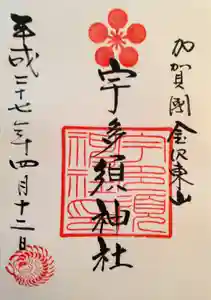 加賀國金沢東山
宇多須神社
平成二十七年四月十二日